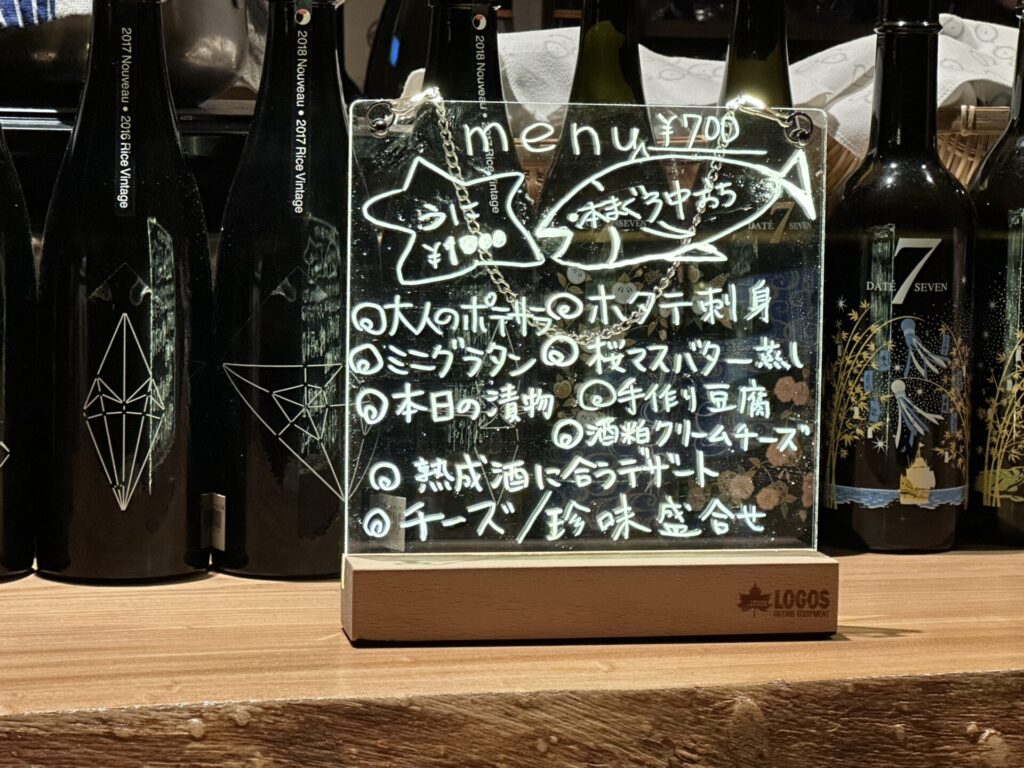 2017 Nouveau • 2016 Rice Vintage
2018 Nouveau • 2017 Rice Vintage
2018 Nouveau
Rice Vintage
menu ¥700
うに
¥1000
本まぐろ中おち
◎大人のポテサラ
◎ホタテ刺身
◎ミニグラタン
◎桜マスバター蒸し
◎本日の漬物
◎手作り豆腐
◎酒粕クリームチーズ
◎熟成酒に合うデザート
◎チーズ/珍味盛合せ
DATE 7 SEVEN
DATE 7 SEVEN
LOGOS
OUTING EQUIPMENT